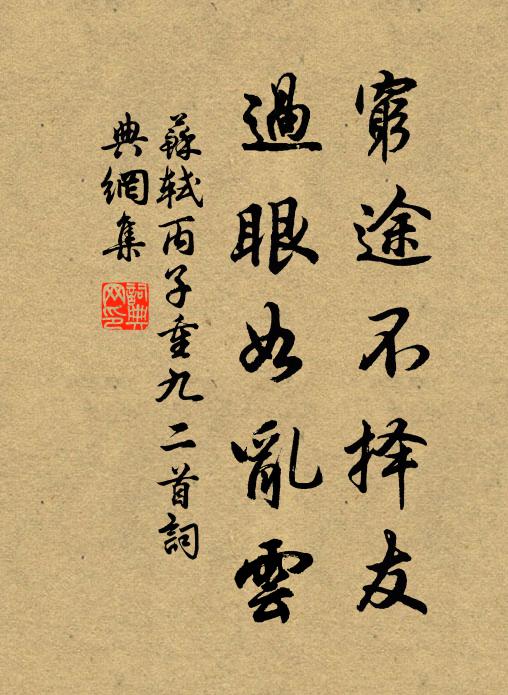 窮途不择友
過眼如亂雲
蘇軾丙子重九二首詞
典網集
詞典網印